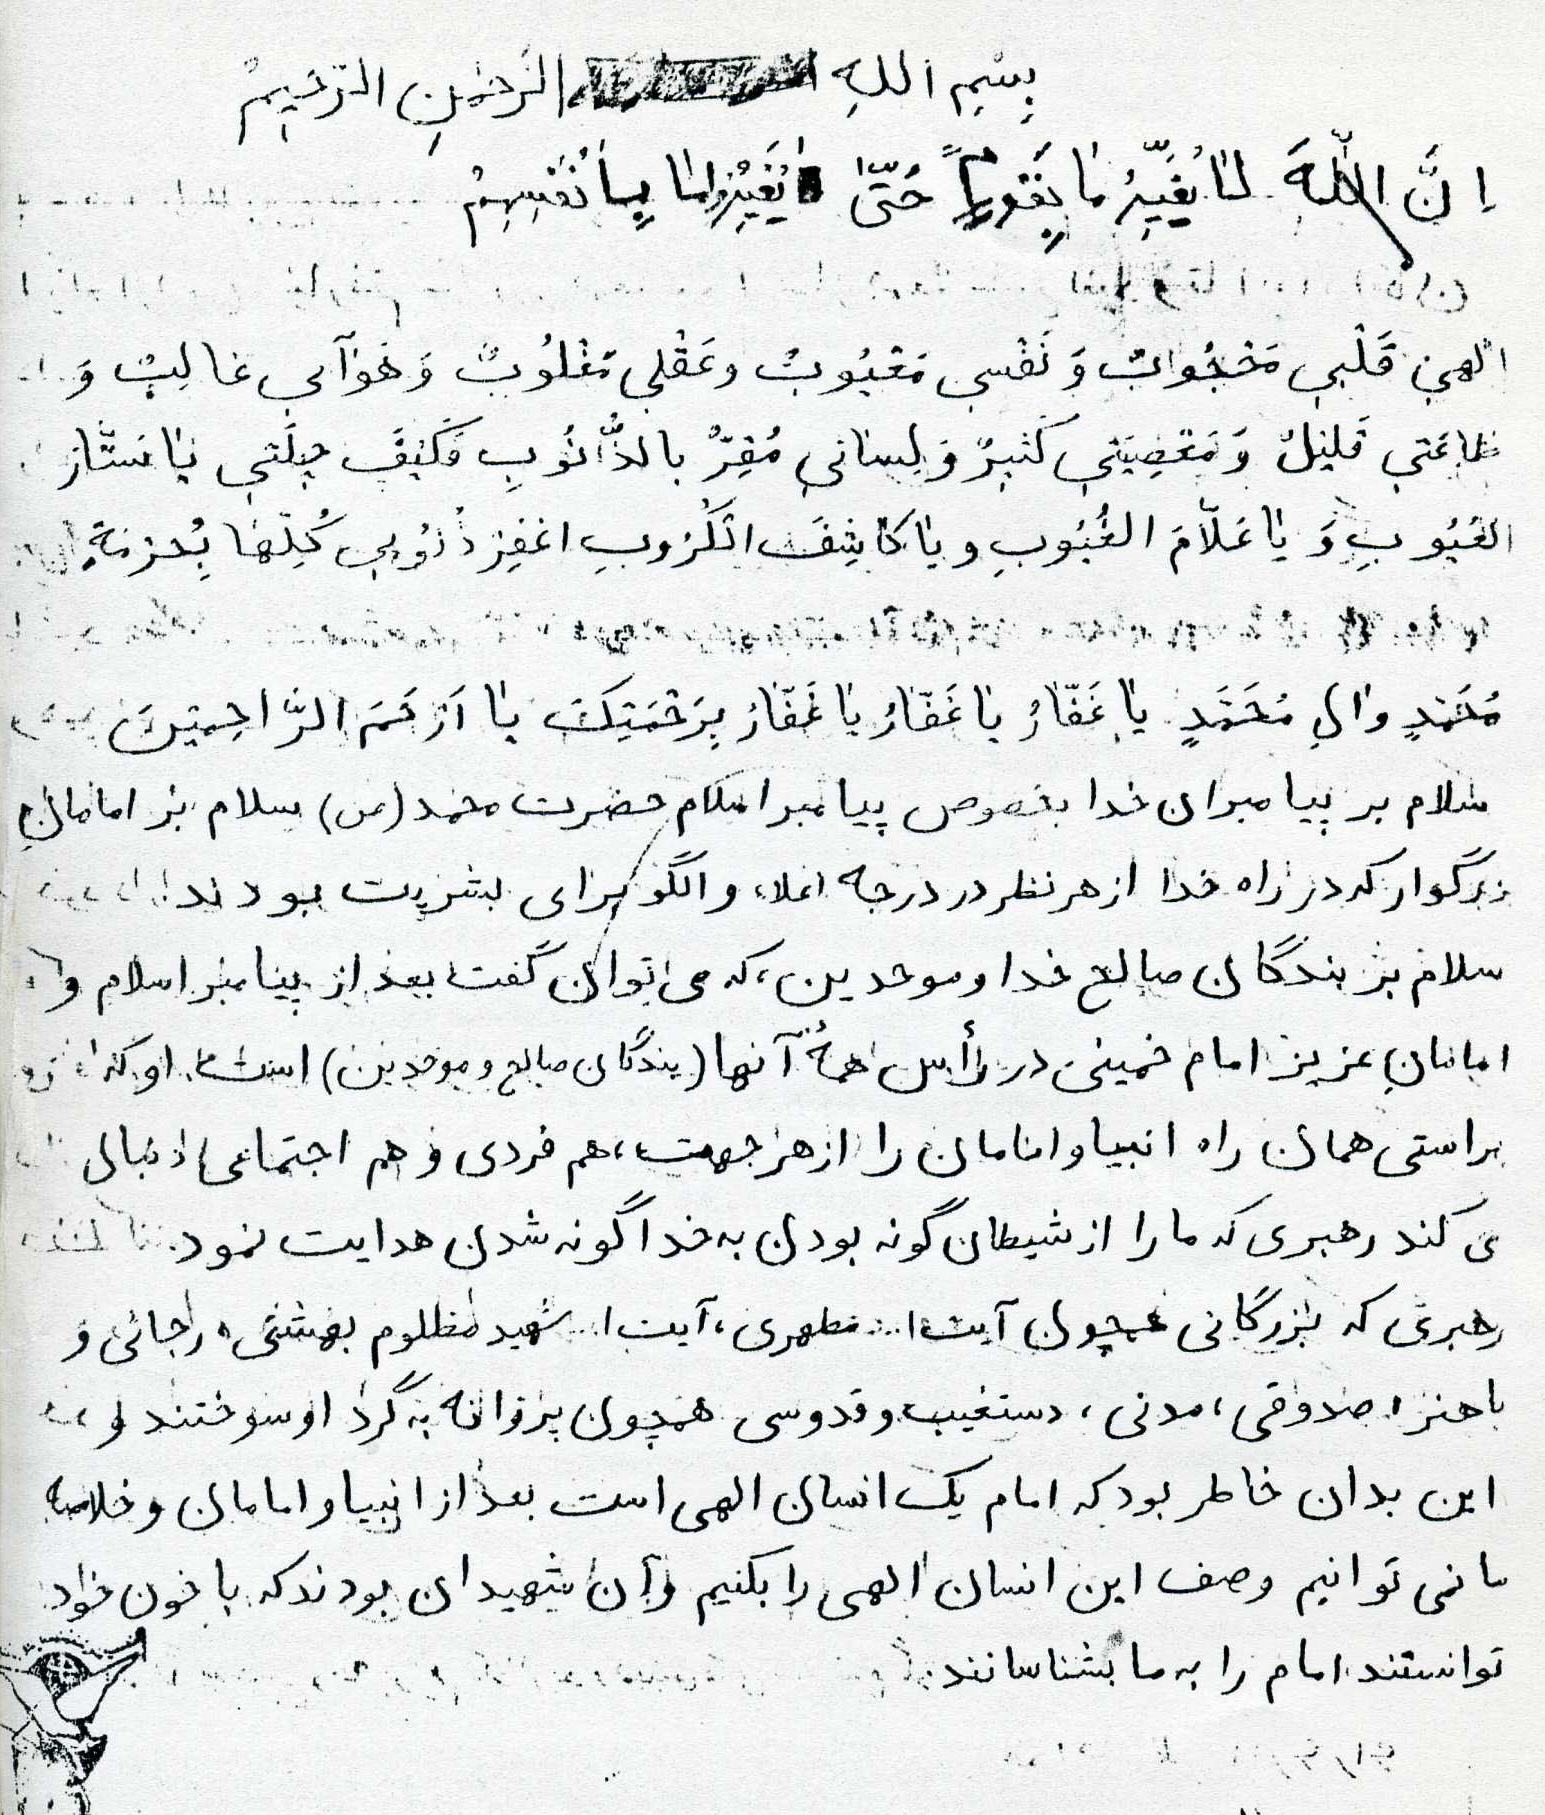 بِسْمِ اللهِ الرَّحْمٰنِ الرَّحیمْ
اِنَّ اللّٰهَ لٰا یُغَیِّرُ مٰا بِقَوْمٍ حَتّیٰ یُغَیِّرُوا مٰا بِاَنْفُسِهِمْ
الٰهی قَلْبی مَحْجُوبٌ وَ نَفْسی مَعْیُوبٌ و عَقْلی مَغْلُوبٌ وَ هَوٰآیی غالِبٌ وَ
طٰاعَتی قَلیلٌ وَ مَعْصِیَتی کَثیرٌ وَ لِسٰانی مُقِرٌّ بالذُّنُوبِ فَکَیْفَ حیلَتی یٰا سَتّٰارَ
العُیُوبِ وَ یٰا عَلّٰامَ الغُیُوبِ و یٰا کٰاشِفَ الکُرُوبِ اغْفِرْ ذُنُوبی کُلَّهٰا بِحُرْمَةِ
مُحَمَّدٍ وَ الِ مُحَمَّدٍ یٰا غَفّٰارُ یٰا غَفّٰارُ یٰا غَفّٰارُ بِرَحْمَتِکَ یٰا اَرْحَمَ الرَّاحِمینَ
سلام بر پیامبران خدا بخصوص پیامبر اسلام حضرت محمد (ص) سلام بر امامان
بزرگوار که در راه خدا از هر نظر در درجه اعلاء و الگو برای بشریت بودند
سلام بر بندگان صالح خدا و موحدین، که می توان گفت بعد از پیامبر اسلام و
امامان عزیز امام خمینی در رأس همهٔ آنها (بندگان صالح و موحدین) است. او که
براستی همان راه انبیا و امامان را از هر جهت، هم فردی و هم اجتماعی دنبال
می کند رهبری که ما را از شیطان گونه بودن به خدا گونه شدن هدایت نمود
رهبری که بزرگانی همچون آیت ا... مطهری، آیت ا... شهید مظلوم بهشتی، رجائی و
باهنر، صدوقی، مدنی، دستغیب و قدوسی همچون پروانه به گرد او سوختند و
این بدان خاطر بود که امام یک انسان الهی است بعد از انبیا و امامان و خلاصه
ما نمی توانیم وصف این انسان الهی را بکنیم و آن شهیدان بودند که با خون خود
توانستند امام را به ما بشناسانند